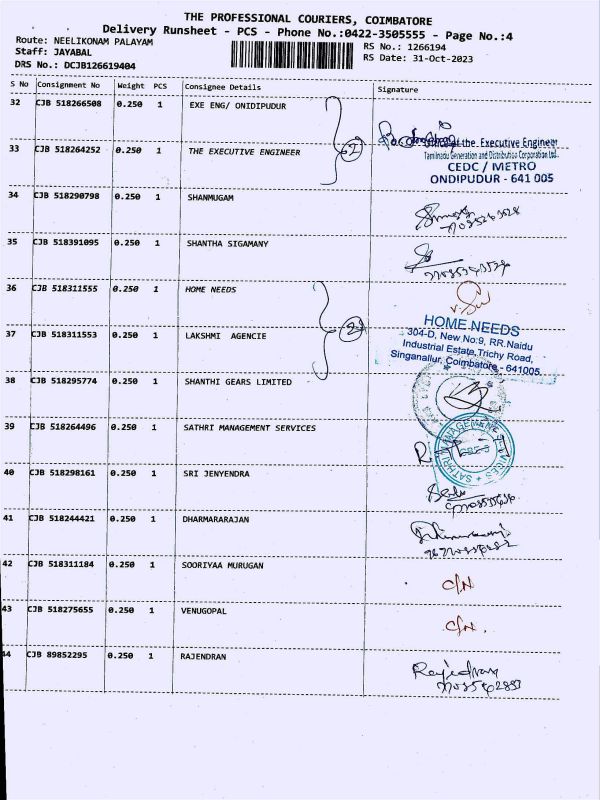 THE PROFESSIONAL COURIERS, COIMBATORE
Delivery Runsheet - PCS - Phone No.:0422-3505555 - Page No.:4
Route: NEELIKONAM PALAYAM
RS No.: 1266194
Staff: JAYABAL
RS Date: 31-Oct-2023
DRS No.: DCJB126619404
S No Consignment No Weight PCS Consignee Details Signature
32 CJB 518266508 0.250 1 EXE ENG/ ONIDIPUDUR
33 CJB 518264252 0.250 1 THE EXECUTIVE ENGINEER
2
the Executive Engineer
Tamilnadu Generation and Distribution Corporation Ltd.
CEDC / METRO
ONDIPUDUR - 641 005
34 CJB 518290798 0.250 1 SHANMUGAM
35 CJB 518391095 0.250 1 SHANTHA SIGAMANY
36 CJB 518311555 0.250 1 HOME NEEDS
37 CJB 518311553 0.250 1 LAKSHMI AGENCIE
2
HOME NEEDS
304-D, New No:9, RR.Naidu
Industrial Estate, Trichy Road,
Singanallur, Coimbatore - 641005.
38 CJB 518295774 0.250 1 SHANTHI GEARS LIMITED
39 CJB 518264496 0.250 1 SATHRI MANAGEMENT SERVICES
SATHRI MANAGEMENT SERVICES
40 CJB 518298161 0.250 1 SRI JENYENDRA
41 CJB 518244421 0.250 1 DHARMARARAJAN
42 CJB 518311184 0.250 1 SOORIYAA MURUGAN C/N
43 CJB 518275655 0.250 1 VENUGOPAL C/N.
44 CJB 89852295 0.250 1 RAJENDRAN Rajedran